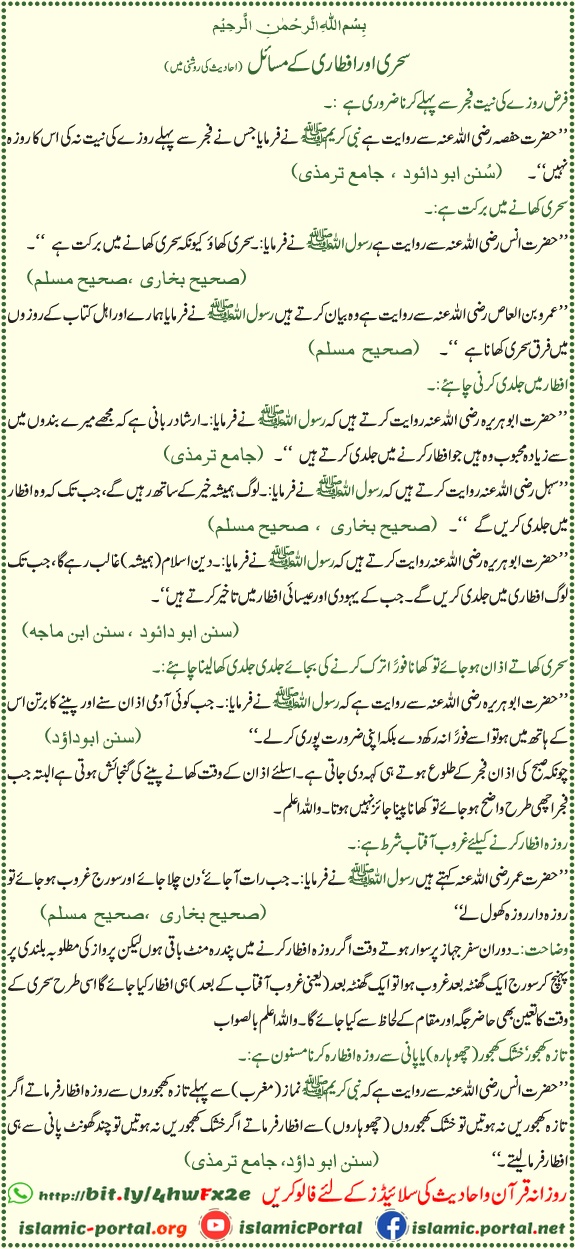 بِسْمِ اللهِ الرَّحْمٰنِ الرَّحِيْمِ
سحری اور افطاری کے مسائل (احادیث کی روشنی میں)
فرض روزے کی نیت فجر سے پہلے کرنا ضروری ہے :۔
’’حضرت حفصہ رضی اللہ عنہ سے روایت ہے نبی کریم ﷺ نے فرمایا جس نے فجر سے پہلے روزے کی نیت نہ کی اس کا روزہ
نہیں‘‘۔ (سُنن ابو دائود ، جامع ترمذی)
سحری کھانے میں برکت ہے:۔
’’حضرت انس رضی اللہ عنہ سے روایت ہے رسول اللہ ﷺ نے فرمایا:۔ سحری کھاؤ کیونکہ سحری کھانے میں برکت ہے ‘‘۔
(صحیح بخاری ،صحیح مسلم)
’’عمرو بن العاص رضی اللہ عنہ سے روایت ہے وہ بیان کرتے ہیں رسول اللہ ﷺ نے فرمایا ہمارے اور اھل کتاب کے روزوں
میں فرق سحری کھانا ہے ‘‘۔ (صحیح مسلم)
افطار میں جلدی کرنی چاہئے:۔
’’حضرت ابو ہریرہ رضی اللہ عنہ روایت کرتے ہیں کہ رسول اللہ ﷺ نے فرمایا:۔ ارشاد ربانی ہے کہ مجھے میرے بندوں میں
سے زیادہ محبوب وہ ہیں جو افطار کرنے میں جلدی کرتے ہیں ‘‘۔ (جامع ترمذی)
’’سہل رضی اللہ عنہ روایت کرتے ہیں کہ رسول اللہ ﷺ نے فرمایا:۔ لوگ ہمیشہ خیر کے ساتھ رہیں گے، جب تک کہ وہ افطار
میں جلدی کریں گے ‘‘۔ (صحیح بخاری ، صحیح مسلم)
’’حضرت ابو ہریرہ رضی اللہ عنہ روایت کرتے ہیں کہ رسول اللہ ﷺ نے فرمایا:۔ دین اسلام (ہمیشہ) غالب رہے گا، جب تک
لوگ افطاری میں جلدی کریں گے۔ جب کے یہودی اور عیسائی افطار میں تاخیر کرتے ہیں‘‘۔
(سنن ابو دائود ، سنن ابن ماجه)
سحری کھاتے اذان ہو جائے تو کھانا فوراً ترک کرنے کی بجائے جلدی جلدی کھا لینا چاہئے:۔
’’حضرت ابو ہریرہ رضی اللہ عنہ سے روایت ہے کہ رسول اللہ ﷺ نے فرمایا:۔ جب کوئی آدمی اذان سنے اور پینے کا برتن اس
کے ہاتھ میں ہو تو اسے فوراً نہ رکھ دے بلکہ اپنی ضرورت پوری کر لے۔‘‘ (سنن ابوداؤد)
چونکہ صبح کی اذان فجر کے طلوع ہوتے ہی کہہ دی جاتی ہے۔ اسلئے اذان کے وقت کھانے پینے کی گنجائش ہوتی ہے البتہ جب
فجر اچھی طرح واضح ہو جائے تو کھانا پینا جائز نہیں ہوتا۔ واللہ اعلم۔
روزہ افطار کرنے کیلئے غروب آفتاب شرط ہے:۔
’’حضرت عمر رضی اللہ عنہ کہتے ہیں رسول اللہ ﷺ نے فرمایا:۔ جب رات آ جائے‘ دن چلا جائے اور سورج غروب ہو جائے تو
روزہ دار روزہ کھول لے‘‘ (صحیح بخاری ،صحیح مسلم)
وضاحت:۔ دوران سفر جہاز پر سوار ہوتے وقت اگر روزہ افطار کرنے میں پندرہ منٹ باقی ہوں لیکن پرواز کی مطلوبہ بلندی پر
پہنچ کر سورج ایک گھنٹہ بعد غروب ہوا تو ایک گھنٹہ بعد (یعنی غروب آفتاب کے بعد) ہی افطار کیا جائے گا اسی طرح سحری کے
وقت کا تعین بھی حاضر جگہ اور مقام کے لحاظ سے کیا جائے گا۔ واللہ اعلم بالصواب
تازہ کھجور‘ خشک کھجور (چھوہارہ) یا پانی سے روزہ افطارہ کرنا مسنون ہے:۔
’’حضرت انس رضی اللہ عنہ سے روایت ہے کہ نبی کریم ﷺ نماز (مغرب) سے پہلے تازہ کھجوروں سے روزہ افطار فرماتے اگر
تازہ کھجوریں نہ ہوتیں تو خشک کھجوروں (چھوہاروں) سے افطار فرماتے اگر خشک کھجوریں نہ ہوتیں تو چند گھونٹ پانی سے ہی
افطار فرما لیتے۔‘‘ (سنن ابو داؤد، جامع ترمذی)
روزانہ قرآن و احادیث کی سلائیڈز کے لئے فالو کریں http://bit.ly/4hwFx2e
islamic-portal.org islamicPortal islamic.portal.net